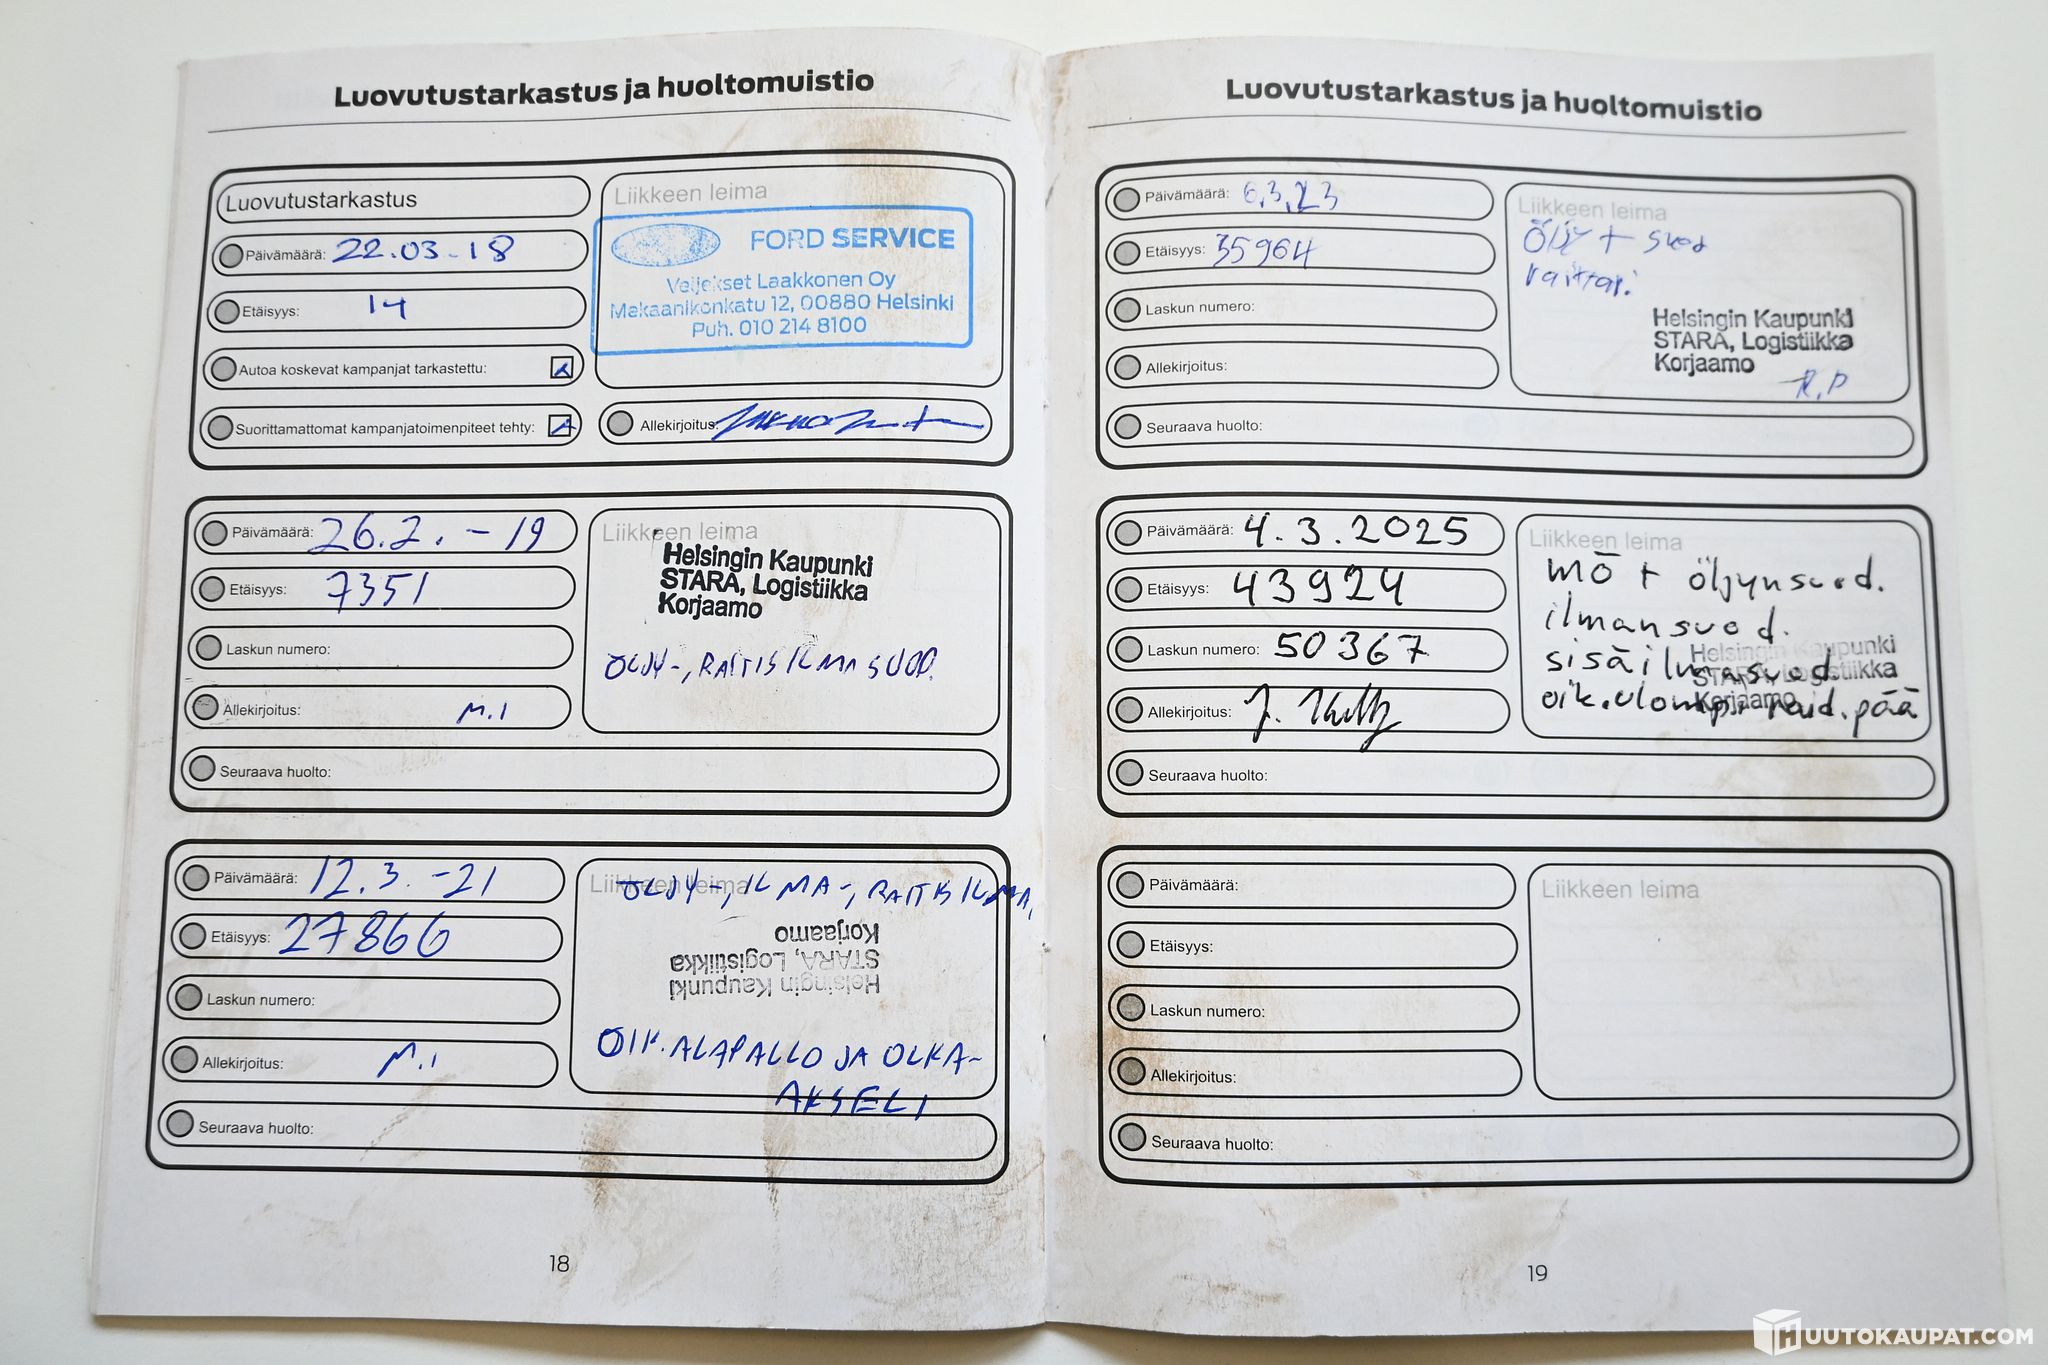 Luovutustarkastus ja huoltomuistio
Luovutustarkastus
Päivämäärä: 22.03-18
Etäisyys: 14
Autoa koskevat kampanjat tarkastettu:
Suorittamattomat kampanjatoimenpiteet tehty:
Liikkeen leima
FORD SERVICE
Veljekset Laakkonen Oy
Mekaanikonkatu 12, 00880 Helsinki
Puh. 010 214 8100
Allekirjoitus:
Päivämäärä: 26.2.-19
Etäisyys: 7351
Laskun numero:
Allekirjoitus: M.I
Liikkeen leima
Helsingin Kaupunki
STARA, Logistiikka
Korjaamo
ÖLJY-, RAITISILMASUOD.
Seuraava huolto:
Päivämäärä: 12.3.-21
Etäisyys: 27866
Laskun numero:
Allekirjoitus: M.I
Liikkeen leima
ÖLJY-, ILMA-, RAITISILMA,
Helsingin Kaupunki
STARA, Logistiikka
Korjaamo
OIK. ALAPALLO JA OLKA-
AKSELI
Seuraava huolto:
18
Luovutustarkastus ja huoltomuistio
Päivämäärä: 6.3.23
Etäisyys: 35964
Laskun numero:
Allekirjoitus:
Liikkeen leima
Öljy + suod
raittari.
Helsingin Kaupunki
STARA, Logistiikka
Korjaamo
R.P
Seuraava huolto:
Päivämäärä: 4.3.2025
Etäisyys: 43924
Laskun numero: 50367
Allekirjoitus:
Liikkeen leima
mö + öljynsuod.
ilmansuod.
sisäilmasuod.
oik.ulompi raid.pää
Helsingin Kaupunki
STARA, Logistiikka
Korjaamo
Seuraava huolto:
Päivämäärä:
Etäisyys:
Laskun numero:
Allekirjoitus:
Liikkeen leima
Seuraava huolto:
19
HUUTOKAUPAT.COM